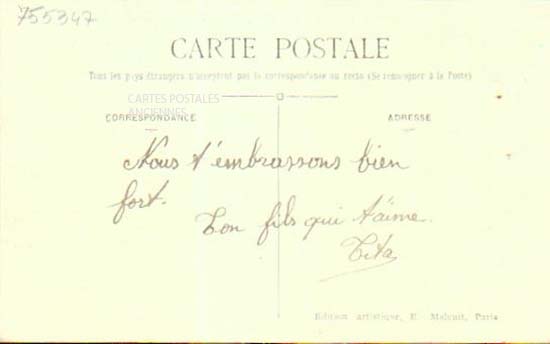 755347
CARTE POSTALE
Tous les pays étrangers n'acceptent pas la correspondance au recto (Se renseigner à la Poste)
CARTES POSTALES
ANCIENNES
CORRESPONDANCE
ADRESSE
Nous t'embrassons bien
fort.
Ton fils qui t'aime.
Tita
Edition artistique, E. Malcuit, Paris